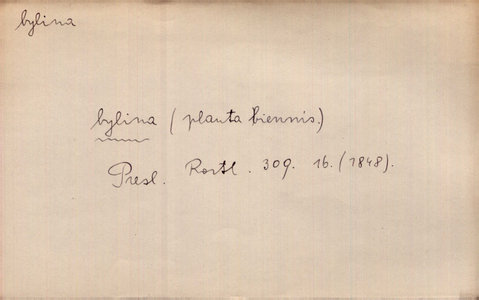 bylina
bylina (planta biennis.)
Presl. Rostl. 309. 16. (1848).